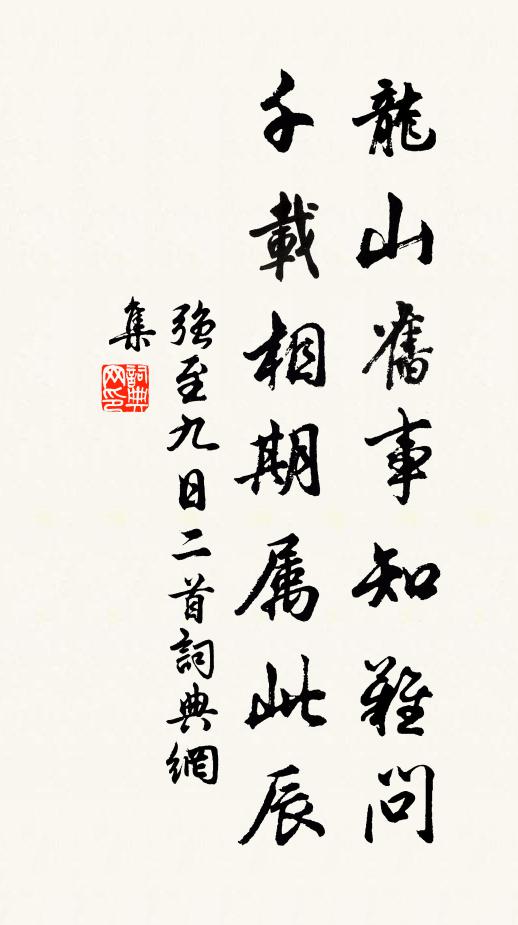 龍山舊事知難問
千載相期属此辰
強至九日二首詞典網
集
詞典
网印